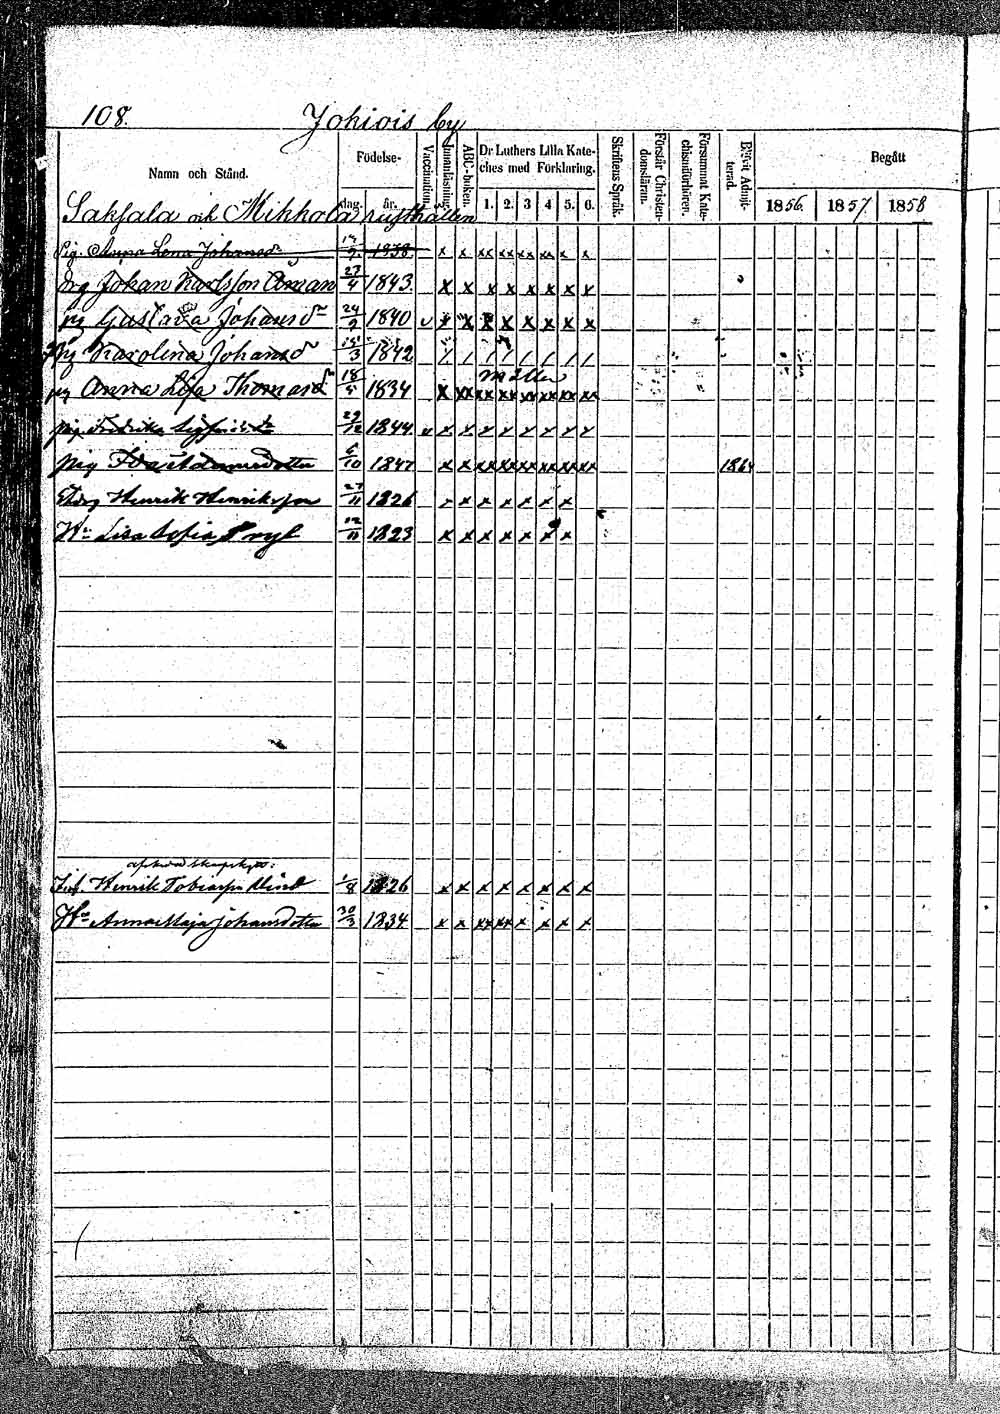 108. Johiois by
Namn och Stånd. Födelse- dag. år. Vaccination. Innanläsning. ABC-boken. Dr Luthers Lilla Kate- ches med Förklaring. 1. 2. 3 4 5. 6. Skriftens Språk. Förstår Christen- domsläran. Försummat Kate- chismiförhören. Blifvit Admit- terad. Begått 1856. 1857. 1858
Saksala och Mikkola rusthållen
Pig. Anna Lena Johansdr 9 1838 x x xx xx xx xx x x
Drg Johan Karlsson Åman 27/4 1843 x x x x x x x x
pig Gustava Johansdr 24/9 1840 v x x x x x x x x
Pig Karolina Johansd 15/3 1842 / / / / / / / /
möller
pig Anna Lisa Thomasdr 18 1834 x xx xx xx xx xx xx xx
pig Fredrika 29/12 1844 v x x x x x x x x
pig Ida 6/10 1847 x x xx xx xx xx xx xx 1864
Henrik Henriksson 27/11 1826 x x x x x x x
Hu Lisa Sofia 12/11 1823 x x x x x x x
Henrik Tobiasson 1/8 1826 x x x x x x x x
Hu Anna Maja Johansdotter 30/3 1834 x x xx xx x x x x